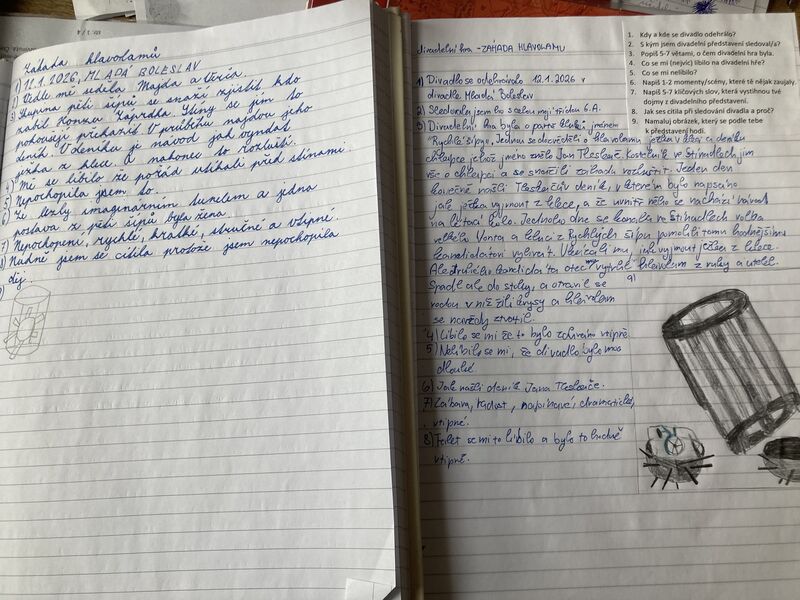 Záhada hlavolamů
1) 11.1.2026, MLADÁ BOLESLAV
2) Vedle mě seděla Majda a Verča.
3) Skupina pěti šípů se snaží zjistit kdo
zabil Konrau Zaprdka. Stíny se jim to
pokouší překazit. V průběhu najdou jeho
deník. V deníku je návod jak vyndat
ježka z klece. A nakonec to rozluští.
4) Mě se líbilo že pořád utíkali před stínami.
5) Nepochopila jsem to.
6) Že lezly imaginárním tunelem a jedna
postava z pěti šípů byla žena.
7) Nepochopení, rychlé, krátké, stručné a vtipné.
8) Nudně jsem se cítila protože jsem nepochopila
děj.
9)
divadelní hra - ZÁHADA HLAVOLAMU
1) Divadlo se odehrávalo 12.1.2026 v
divadle Mladá Boleslav
2) Sledovala jsem ho s celou mojí třídou 6.A.
3) Divadelní hra byla o partě kluků jménem
"Rychlé" šípy. Jednou se dozvěděli o hlavolamu ježka v kleci a deníku
chlapce jehož jméno znělo Jan Tleskač. Kostelník ve Stínadlech jim
vše o chlapci a se snažili záhadu rozluštit. Jeden den
konečně našli Tleskačův deník, v kterém bylo napsáno
jak ježka vyjmout z klece, a že uvnitř něho se nachází návod
na létací kolo. Jednoho dne se konala ve Stínadlech volba
velkého Vonta a kluci z Rychlých šípů pomohli tomu hodnějšímu
kandidátovi vyhrát. Ukázali mu, jak vyjmout ježka z klece.
Ale druhého kandidáta otec mu vytrhl hlavolam z ruky a utekl.
Spadl ale do stoky, a otrávil se
vodou v níž žili krysy a hlavolam
se navždy ztratil.
4) Líbilo se mi že to bylo ztvárněno vtipně
5) Nelíbilo se mi, že divadlo bylo moc
dlouhé
6) Jak našli deník Jana Tleskače.
7) Zábava, radost, napínavé, dramatické,
vtipné.
8) Fakt se mi to líbilo a bylo to hodně
vtipné.
9)
1. Kdy a kde se divadlo odehrálo?
2. S kým jsem divadelní představení sledoval/a?
3. Popiš 5-7 větami, o čem divadelní hra byla.
4. Co se mi (nejvíc) líbilo na divadelní hře?
5. Co se mi nelíbilo?
6. Napiš 1-2 momenty/scény, které tě nějak zaujaly.
7. Napiš 5-7 klíčových slov, která vystihnou tvé
dojmy z divadelního představení.
8. Jak ses cítil/a při sledování divadla a proč?
9. Namaluj obrázek, který se podle tebe
k představení hodí.